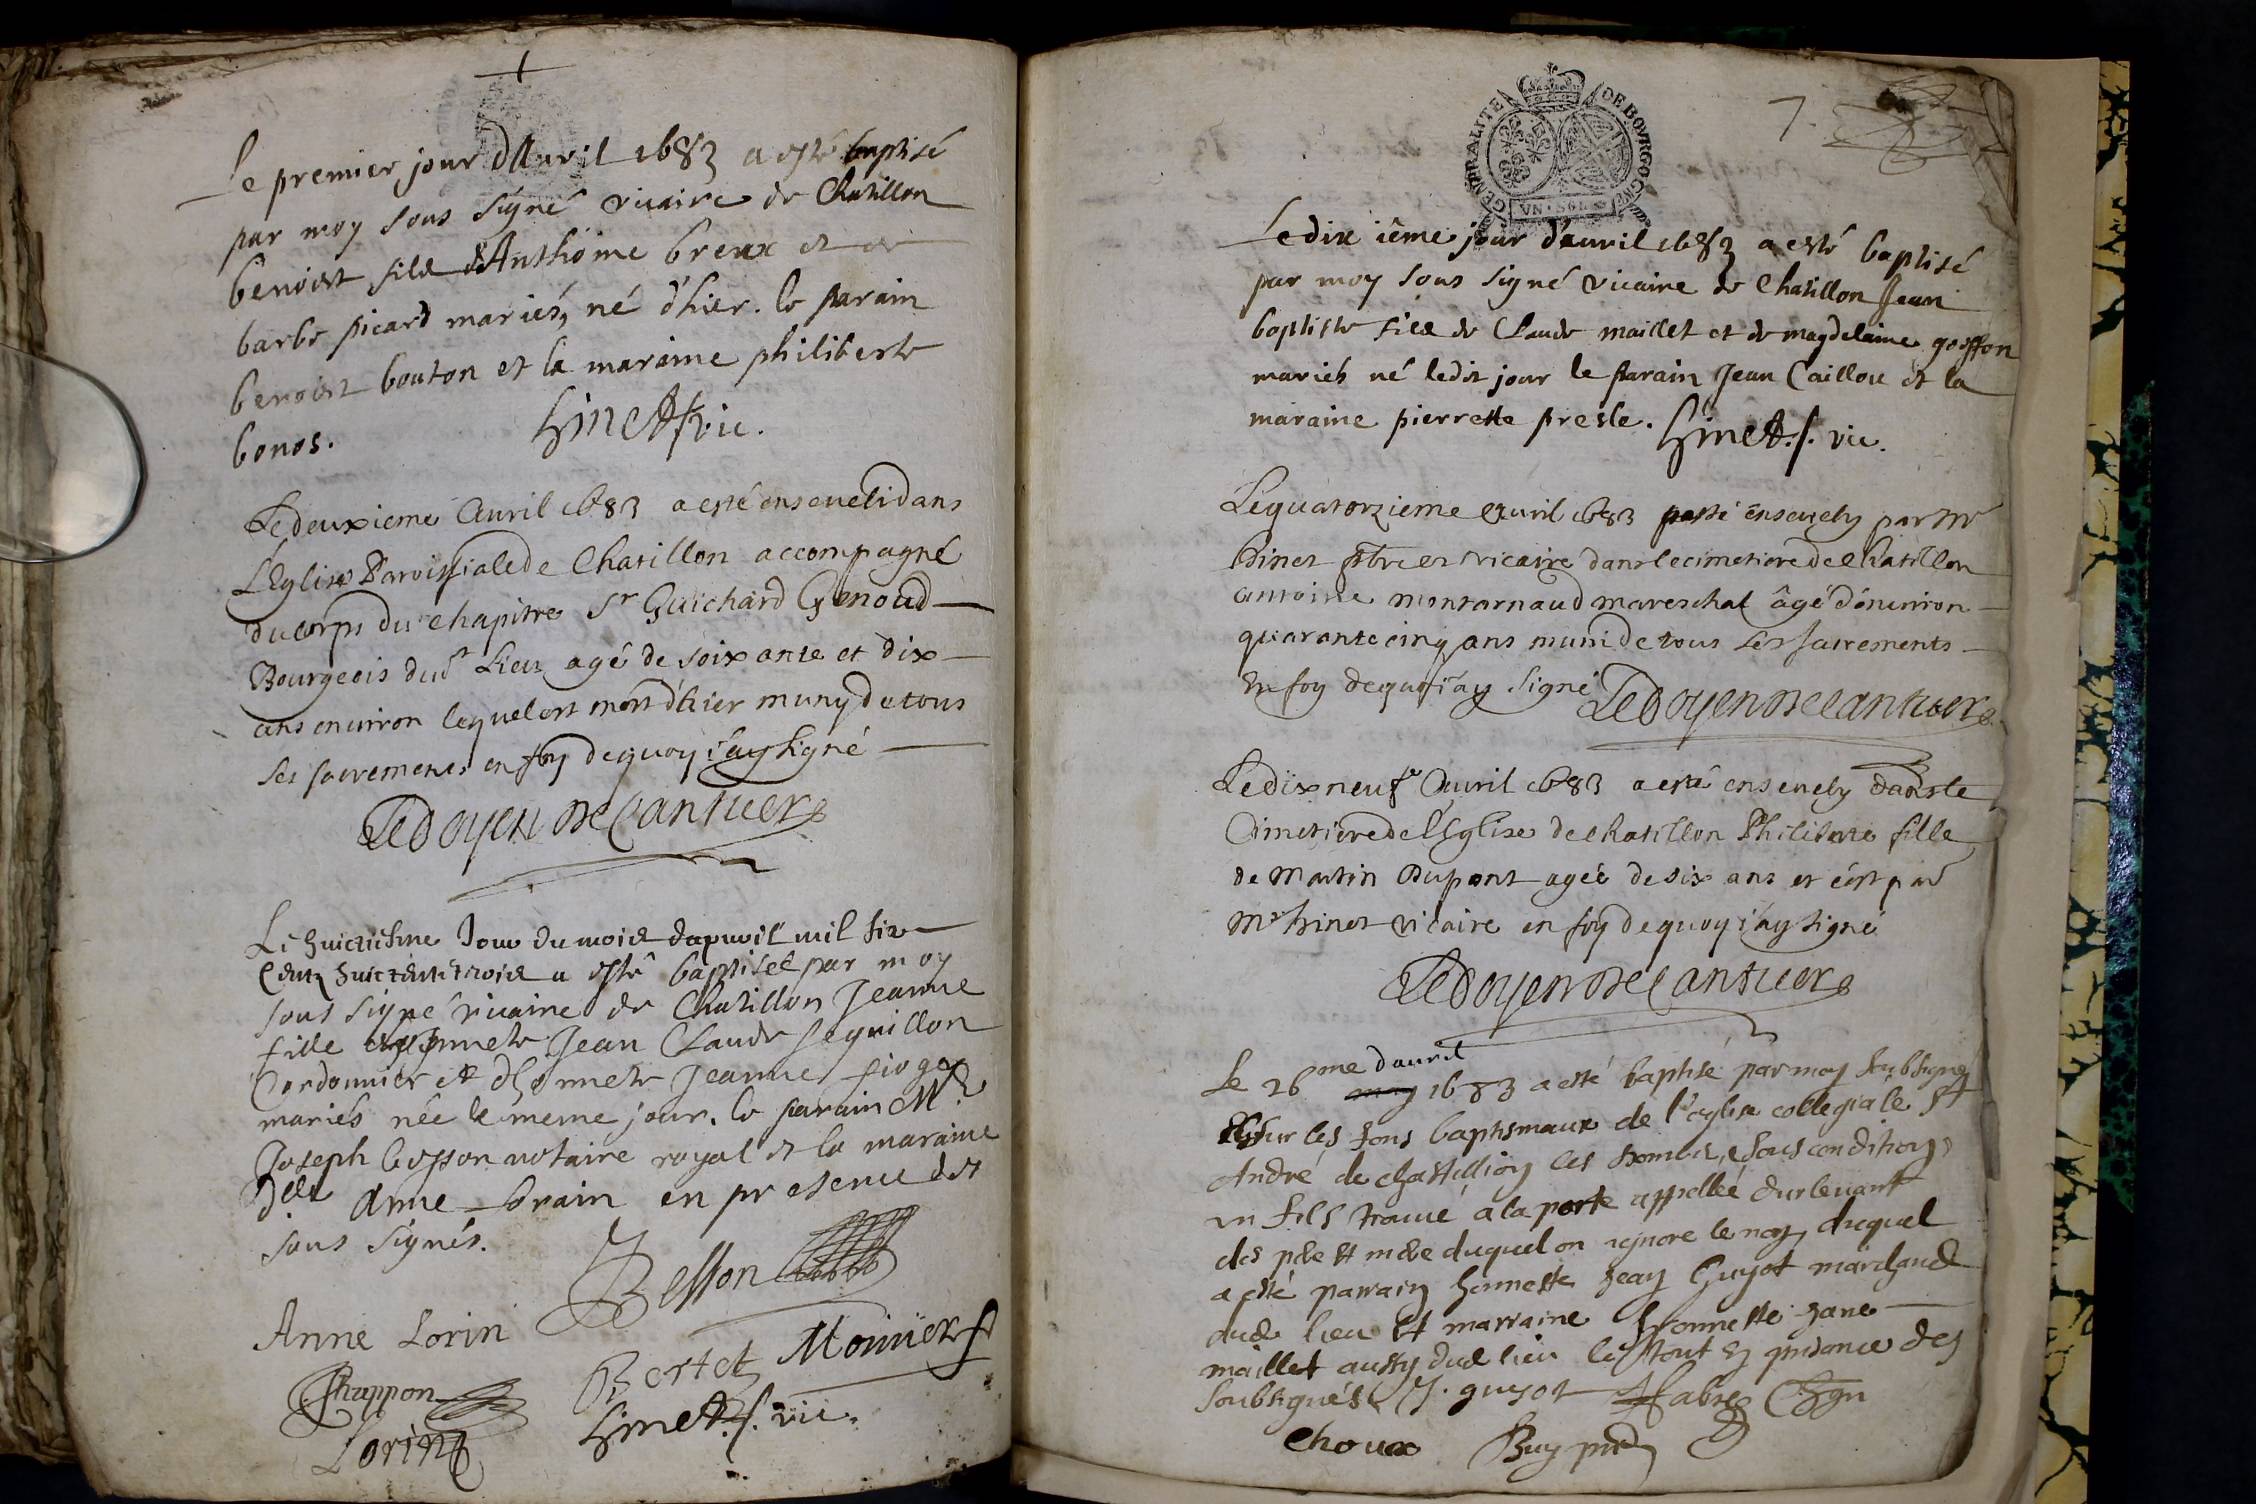 Le premier jour d'Auril 1683 a esté baptisé
par moy sous signé vicaire de Chatillon
benoist fils d'Anthoine breux et de
barbe picard mariés, né d'hier. le parain
benoist bouton et la maraine philiberte
bonos.
hinet p. vic.
Le deuxieme Auril 1683 a esté enseueli dans
L'Eglise Paroissiale de Chatillon accompagné
du corps du chapitre Sr Guichard Genoud
Bourgeois dud't Lieu agé de soixante et dix
ans enuiron lequel est mort d'hier muny de tous
ses sacrements en foy dequoy i'ay signé
Ledoyen De Cantuer
Le huictiesme Jour du mois dapuril mil six
Centz huictante trois a esté baptisée par moy
sous signé vicaire de Chatillon Jeanne
fille Jean Claude Seguillon
Cordonnier et d'honneste Jeanne
mariés née le meme jour. le parain Mre
Joseph besson notaire royal et la maraine
Dlle Anne Lorain en presence des
sous signés.
Besson
Anne Lorin
Bertet Monnier
Chappon
Lorin
hinet p. vic.
GENERALITE DE BOVRGOGNE
VN · SOL
7.
Le dix ième jour d'auril 1683 a esté baptisé
par moy sous signé vicaire de Chatillon Jean
baptiste fils de Claude maillet et de magdelaine goiffon
mariés né ledit jour le parain Jean Caillou et la
maraine pierrette presle. hinet. p. vic.
Le quatorzieme Auril 1683 esté enseuely par Mr
hinet pbre et vicaire dans le cimetiere de Chatillon
antoine montarnaud mareschal âgé d'enuiron
quarante cinq ans muni de tous les sacrements
En foy dequoi i'ay signé Ledoyen De Cantuer
Le dix neuf Auril 1683 a esté enseuely dans le
Cimetiere de l'Eglise de Chatillon Philiberte fille
de Martin Dupont agée de six ans et c'est par
Mr hinet vicaire en foy dequoy i'ay signé
Ledoyen De Cantuer
Le 26me dauril may 1683 a esté baptisé par moy soubsigné
sur les fons baptismaux de l'eglise collegiale St
André de chastillion les Dombes, sous condition
un fils trouué a la porte appellée
des pere et mere duquel on ignore le nom, duquel
a esté parrain honneste Jean Guyot marchand
dud lieu Et marraine honneste Jane
maillet aussy dud lieu le tout en presence des
soubsignés J. guyot fabre
Choux Buy